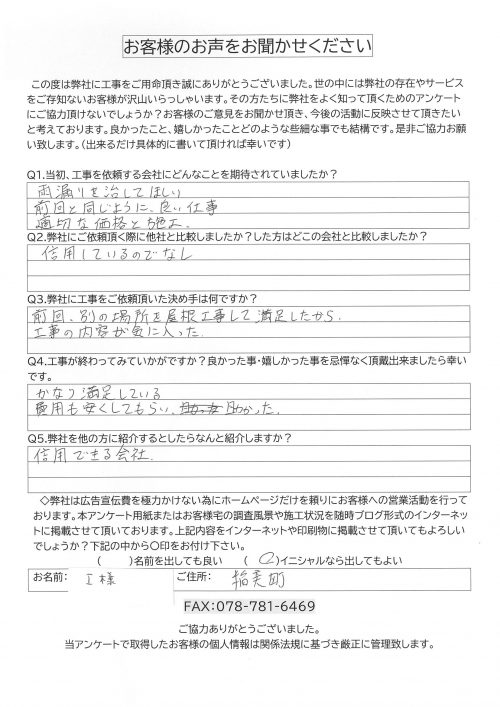 お客様のお声をお聞かせください
この度は弊社に工事をご用命頂き誠にありがとうございました。世の中には弊社の存在やサービス
をご存知ないお客様が沢山いらっしゃいます。その方たちに弊社をよく知って頂くためのアンケート
にご協力頂けないでしょうか?お客様のご意見をお聞かせ頂き、今後の活動に反映させて頂きたい
と考えております。良かったこと、嬉しかったことどのような些細な事でも結構です。是非ご協力お願
い致します。(出来るだけ具体的に書いて頂ければ幸いです)
Q1.当初、工事を依頼する会社にどんなことを期待されていましたか?
雨漏りを治してほしい
前回と同じように、良い仕事
適切な価格と施工.
Q2.弊社にご依頼頂く際に他社と比較しましたか?した方はどこの会社と比較しましたか?
信用しているのでなし
Q3.弊社に工事をご依頼頂いた決め手は何ですか?
前回、別の場所を屋根工事して満足したから.
工事の内容が気に入った.
Q4.工事が終わってみていかがですか?良かった事・嬉しかった事を忌憚なく頂戴出来ましたら幸い
です。
かなり満足している
費用も安くしてもらい、助かった.
Q5.弊社を他の方に紹介するとしたらなんと紹介しますか?
信用できる会社.
◇弊社は広告宣伝費を極力かけない為にホームページだけを頼りにお客様への営業活動を行って
おります。本アンケート用紙またはお客様宅の調査風景や施工状況を随時ブログ形式のインターネッ
トに掲載させて頂いております。上記内容をインターネットや印刷物に掲載させて頂いてもよろしい
でしょうか?下記の中から〇印をお付け下さい。
( )名前を出しても良い (〇)イニシャルなら出してもよい
お名前: I様 ご住所: 稲美町
FAX:078-781-6469
ご協力ありがとうございました。
当アンケートで取得したお客様の個人情報は関係法規に基づき厳正に管理致します。